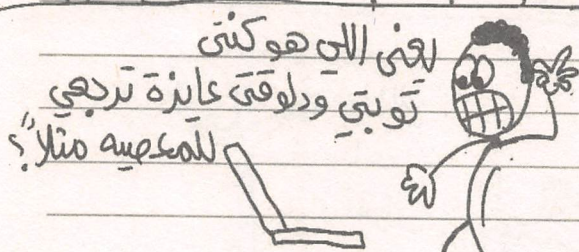 يعني اللي هو كنتي
توبتي ودلوقتي عايزة ترجعي
للمعصيه مثلاً؟